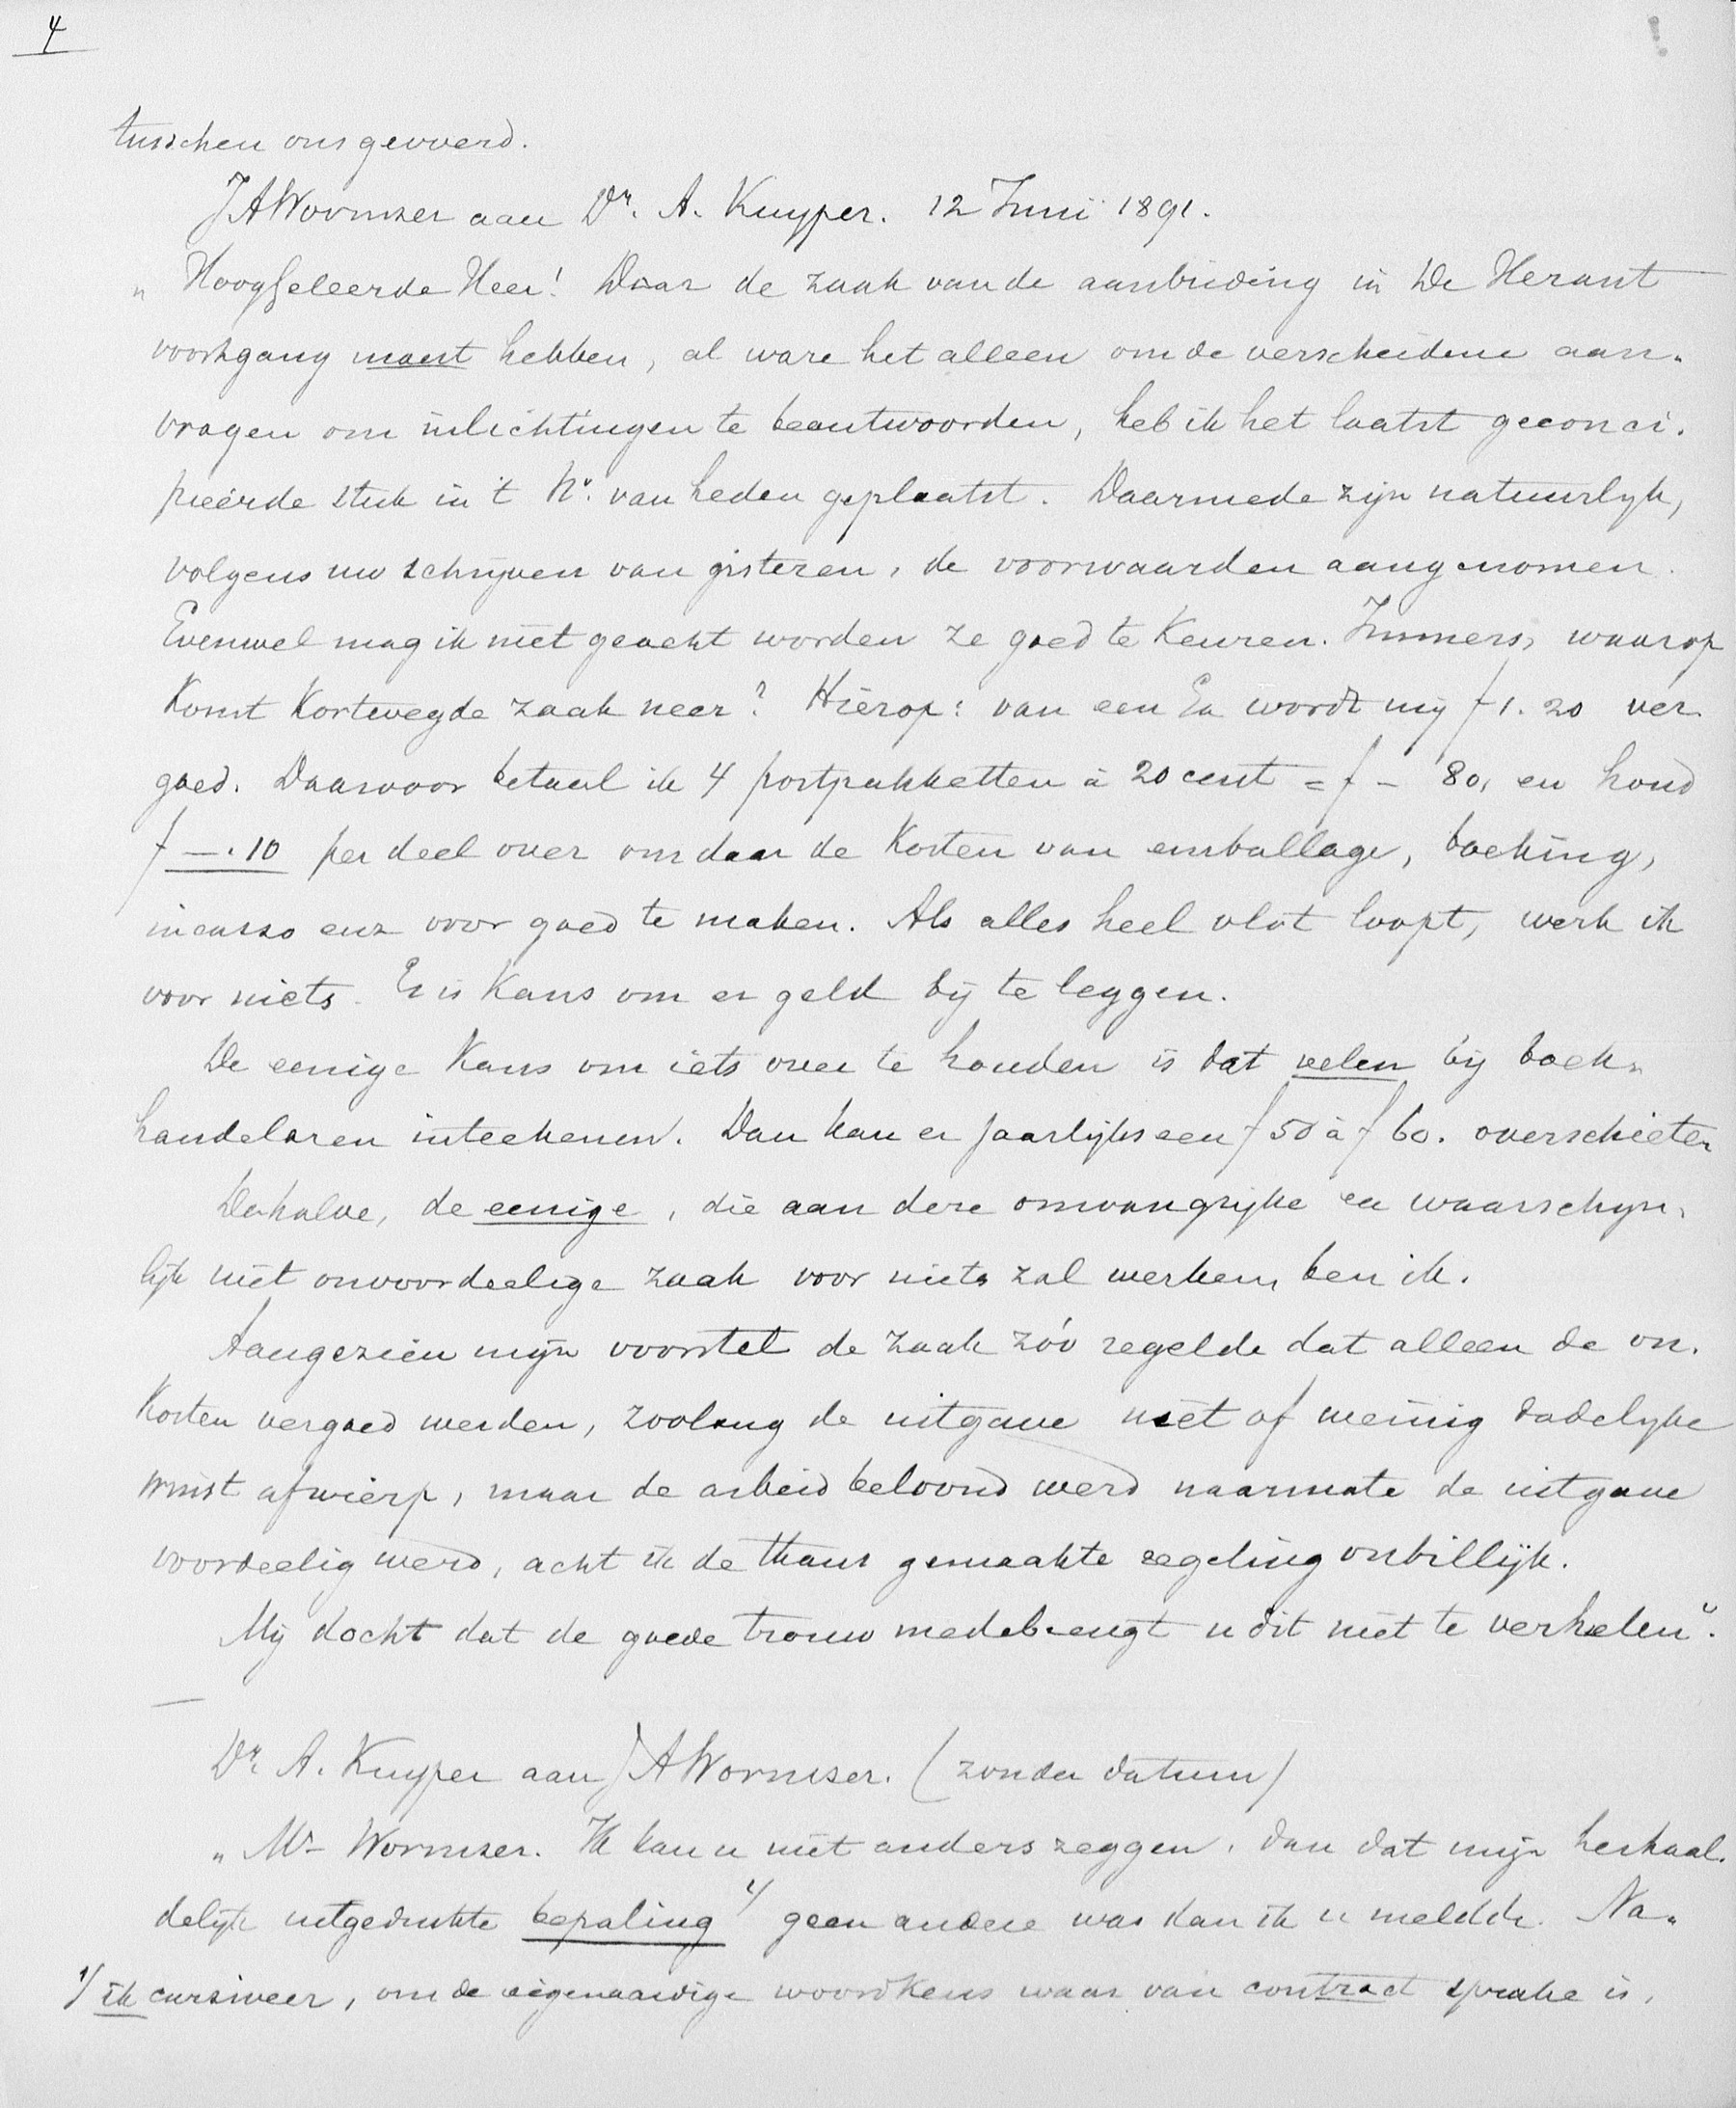 4
tusschen ons gevoerd.
JAWormser aan Dr. A. Kuyper. 12 Juni 1891.
„Hooggeleerde Heer! Daar de zaak van de aanbieding in De Heraut
voortgang moest hebben, al ware het alleen om de verscheidene aan-
vragen om inlichtingen te beantwoorden, heb ik het laatst geconci-
pieerde stuk in 't No. van heden geplaatst. Daarmede zijn natuurlyk,
volgens uw schrijven van gisteren, de voorwaarden aangenomen.
Evenwel mag ik niet geacht worden ze goed te keuren. Immers, waarop
komt kortweg de zaak neer? Hierop: van een Ex wordt mij f 1.20 ver-
goed. Daarvoor betaal ik 4 postpakketten à 20 cent = f - 80, en houd
f —.10 per deel over om daar de kosten van emballage, boeking,
incasso enz voor goed te maken. Als alles heel vlot loopt, werk ik
voor niets. Er is kans om er geld bij te leggen.
De eenige kans om iets over te houden is dat velen bij boek-
handelaren inteekenen. Dan kan er jaarlijks een f 50 à f 60. overschieten
Derhalve, de eenige, die aan deze omvangrijke en waarschijn-
lijk niet onvoordeelige zaak voor niets zal werken, ben ik.
Aangezien mijn voorstel de zaak zóó regelde dat alleen de on-
kosten vergoed werden, zoolang de uitgave niet of weinig dadelyke
winst afwierp, maar de arbeid beloond werd naarmate de uitgave
voordeelig werd, acht ik de thans gemaakte regeling onbillijk.
Mij docht dat de goede trouw medebrengt u dit niet te verhelen".
—
Dr. A. Kuyper aan JAWormser. (zonder datum)
„Mr Wormser. Ik kan u niet anders zeggen, dan dat mijn herhaal-
delijk uitgedrukte bepaling 1/ geen andere was dan ik u meldde. Na-
1/ ik cursiveer, om de eigenaardige woordkeus waar van contract sprake is.